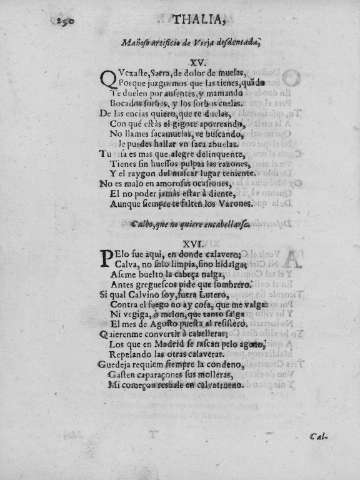 250
THALIA,
Mañoso artificio de Vieja desdentada,
XV.
QVexaste, Sarra, de dolor de muelas,
Porque juzguemos que las tienes, quãdo
Te duelen por ausentes, y mamando
Bocados sorbes, y los sorbos cuelas.
De las encias quiero, que te duelas,
Con què estàs el gigote aporreando,
No llames sacamuelas, ve buscando,
le puedes hallar vn saca abuelas.
Tu risa es mas que alegre delinquente,
Tienes sin huessos pulpas las razones,
Y el raygon del mascar lugar teniente.
No es malo en amorosas ocasiones,
El no poder jamàs estar à diente,
Aunque siempre te falten los Varones.
Calbo, que no quiere encabellarse.
XVI.
PElo fue aqui, en donde calavero;
Calva, no solo limpia, sino hidalga;
Aseme buelto la cabeça nalga,
Antes greguescos pide que sombrero.
Si qual Calvino soy, fuera Lutero,
Contra el fuego no ay cosa, que me valga:
Ni vegiga, ò melon, que tanto salga
El mes de Agosto puesta al resistero.
Quierenme convertir à cabelleras;
Los que en Madrid se rascan pelo ageno,
Repelando las otras calaveras.
Guedeja requiem siempre la condeno,
Gasten caparaçones sus molleras,
Mi comezon resbale en calvatrueno.
Cal-